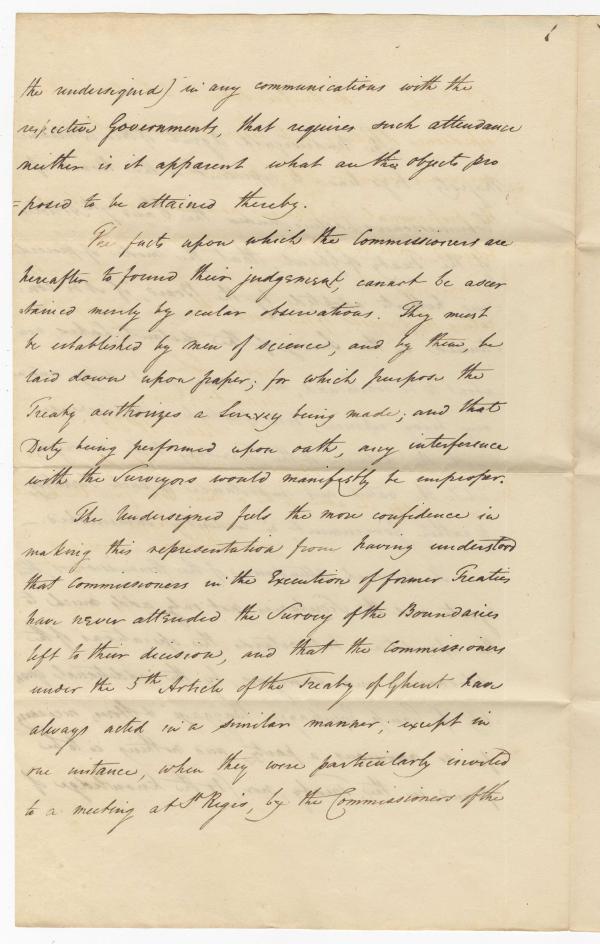 the undersigned) in any communications with the
respective Governments, that requires such attendance
neither is it apparent what are the objects pro
=posed to be attained thereby.
The facts upon which the Commissioners are
hereafter to found their judgement, cannot be ascer
tained merely by ocular observations. They must
be established by men of science, and by them, be
laid down upon paper; for which purpose the
Treaty authorizes a Survey being made; and that
Duty being performed upon oath, any interference
with the Surveyors would manifestly be improper.
The Undersigned feels the more confidence in
making this representation from having understood
that Commissioners in the Execution of former Treaties
have never attended the Survey of the Boundaries
left to their decision, and that the Commissioners
under the 5th Article of the Treaty of Ghent have
always acted in a similar manner; except in
one instance, when they were particularly invited
to a meeting at St Regis, by the Commissioners of the